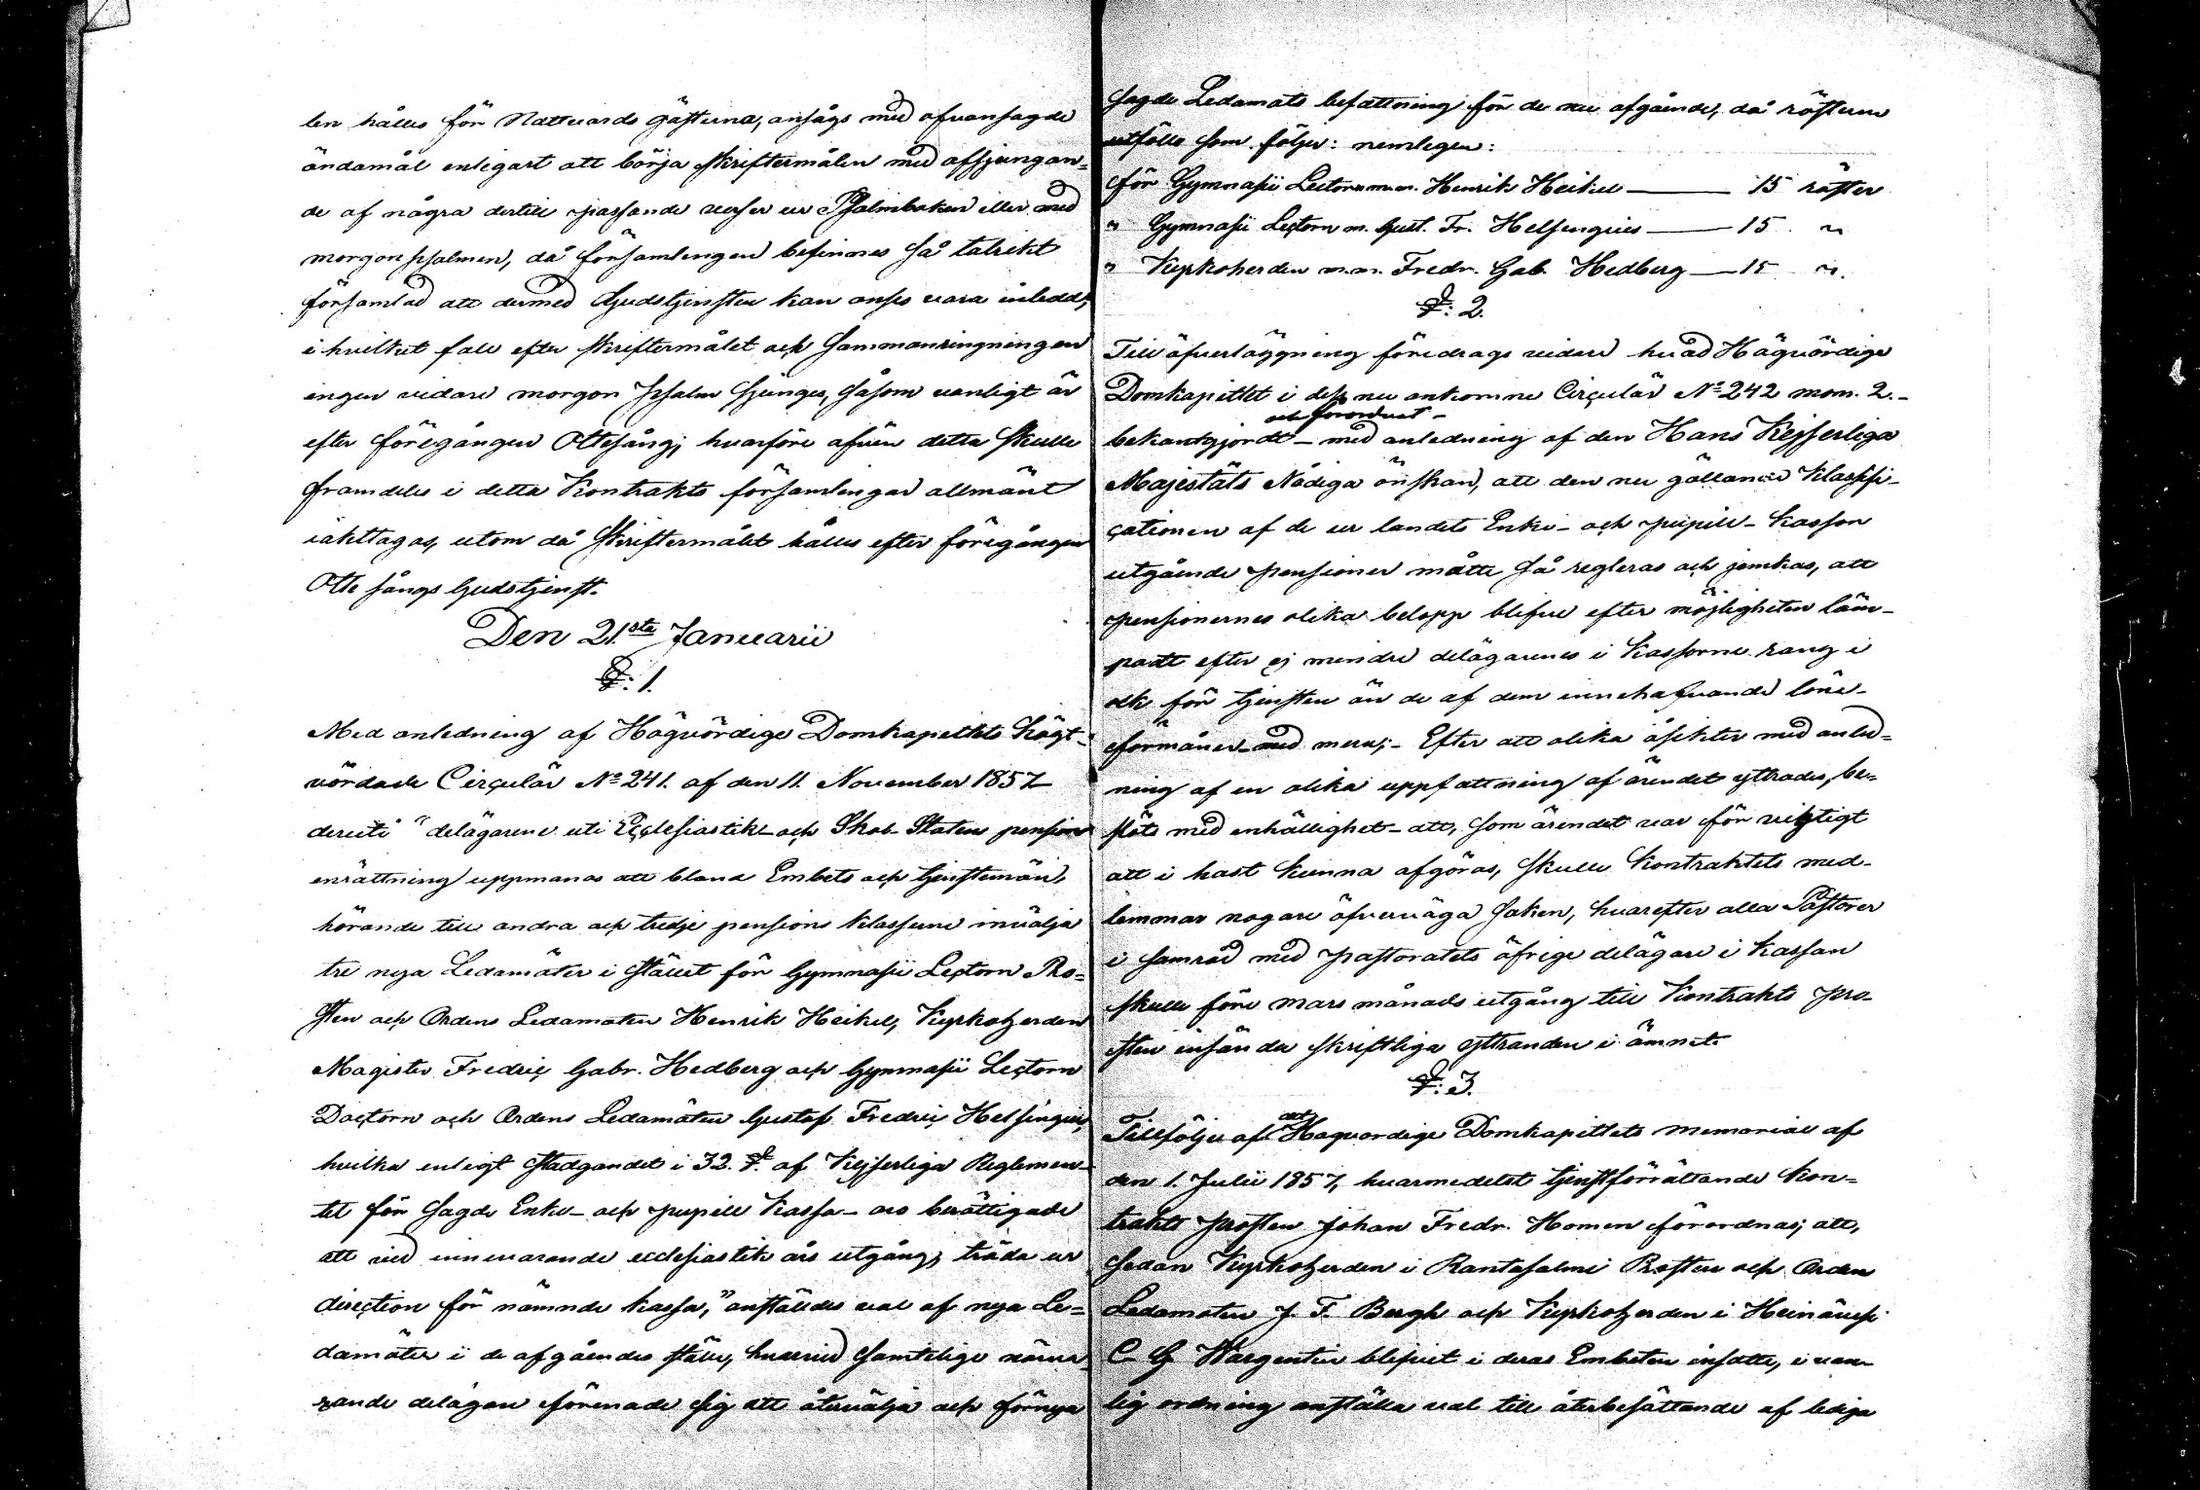 len hålles för Nattvards gästerna, ansågs med ofvansagde
ändamål enligast att börja Skriftermålen med afsjungan=
de af några dertill passande verser ur Psalmboken eller med
morgonpsalmen, då församlingen befinnes så talrikt
församlad att dermed Gudstjensten kan anses vara inledd,
i hvilket fall efter Skriftermålet och Sammanringningen
ingen vidare morgon Psalm Sjunges, såsom vanligt är
efter föregången Ottesång; hvarföre äfven detta skulle
framdeles i detta Kontrakts församlingar allmänt
iakttagas, utom då Skriftermålet hålles efter föregången
Otte sångs Gudstjenst.
Den 21sta Januarii
§: 1.
Med anledning af Högvördige Domkapitlets högt-
vördade Circulär No 241. af den 11. November 1857
deruti "delägarene uti Ecclesiastik- och Skol Statens pensions
enrättning uppmanas att bland Embets och tjenstemän,
hörande till andra och tredje pensions klasserne invälja
tre nya Ledamöter i stället för Gymnasii Lectorn Pro=
sten och Ordens Ledamoten Henrik Heikel, Kyrkoherden
Magister Fredric Gabr. Hedberg och Gymnasii Lectorn
Doctorn och Ordens Ledamoten Gustaf Fredric Helsingius,
hvilka enligt stadgandet i 32. §. af Kejserliga Reglemen-
tet för Sagde Enke- och pupill Kassa- äro berättigade
att vid innevarande ecclesiastik års utgång, träda ur
direction för nämnde Kassa," anställdes val af nya Le=
damöter i de afgåendes ställe, hvarvid samtelige närva-
rande delägare förenade sig att återvälja och förnya
sagde Ledamots befattning för de nu afgående, då rösterna
utföllo som följer: nemligen:
för Gymnasii Lectorn m.m. Henrik Heikel — 15 röster
" Gymnasii Lectorn m. Gust. Fr. Helsingius — 15 "
" Kyrkoherden m.m. Fredr. Gab. Hedberg — 15 ".
§: 2.
Till öfverläggning föredrogs vidare hvad Högvördige
Domkapitlet i dess nu ankomne Circulär No 242 mom. 2.-
och förordnat-
bekantgjordt- med anledning af den Hans Kejserliga
Majestäts Nådiga önskan, att den nu gällande Klassifi-
cationen af de ur landets Enke- och pupill- kassor
utgående pensioner måtte så regleras och jemkas, att
pensionernes olika belopp blifve efter möjligheten läm-
padt efter ej mindre delägarenes i Kassorne rang i
och för tjensten än de af dem innehafvande löne-
förmåner- med mera;- Efter att olika åsikter med anled=
ning af en olika uppfattning af ärendet yttrades, be=
slöts med enhällighet- att, som ärendet var för vigtigt
att i hast kunna afgöras, skulle Kontraktets med-
lemmar nogare öfverväga Saken, hvarefter alla Pastorer
i samråd med pastoratets öfrige delägare i Kassan
skulle före mars månads utgång till Kontrakts pro-
sten insända skriftliga yttranden i ämnet.
§: 3.
det
Tillfölje af Högvordige Domkapitlets memorial af
den 1. Julii 1857, hvarmedelst tjenstförrättande Kon=
trakts prosten Johan Fredr. Homen förordnas; att,
sedan Kyrkoherden i Rantasalmi Prosten och Ordens
Ledamoten J. F. Bergh och Kyrkoherden i Heinävesi
C G Wargentin blifvit i deras Embeten insatte, i van-
lig ordning anställa val till återbesättande af lediga